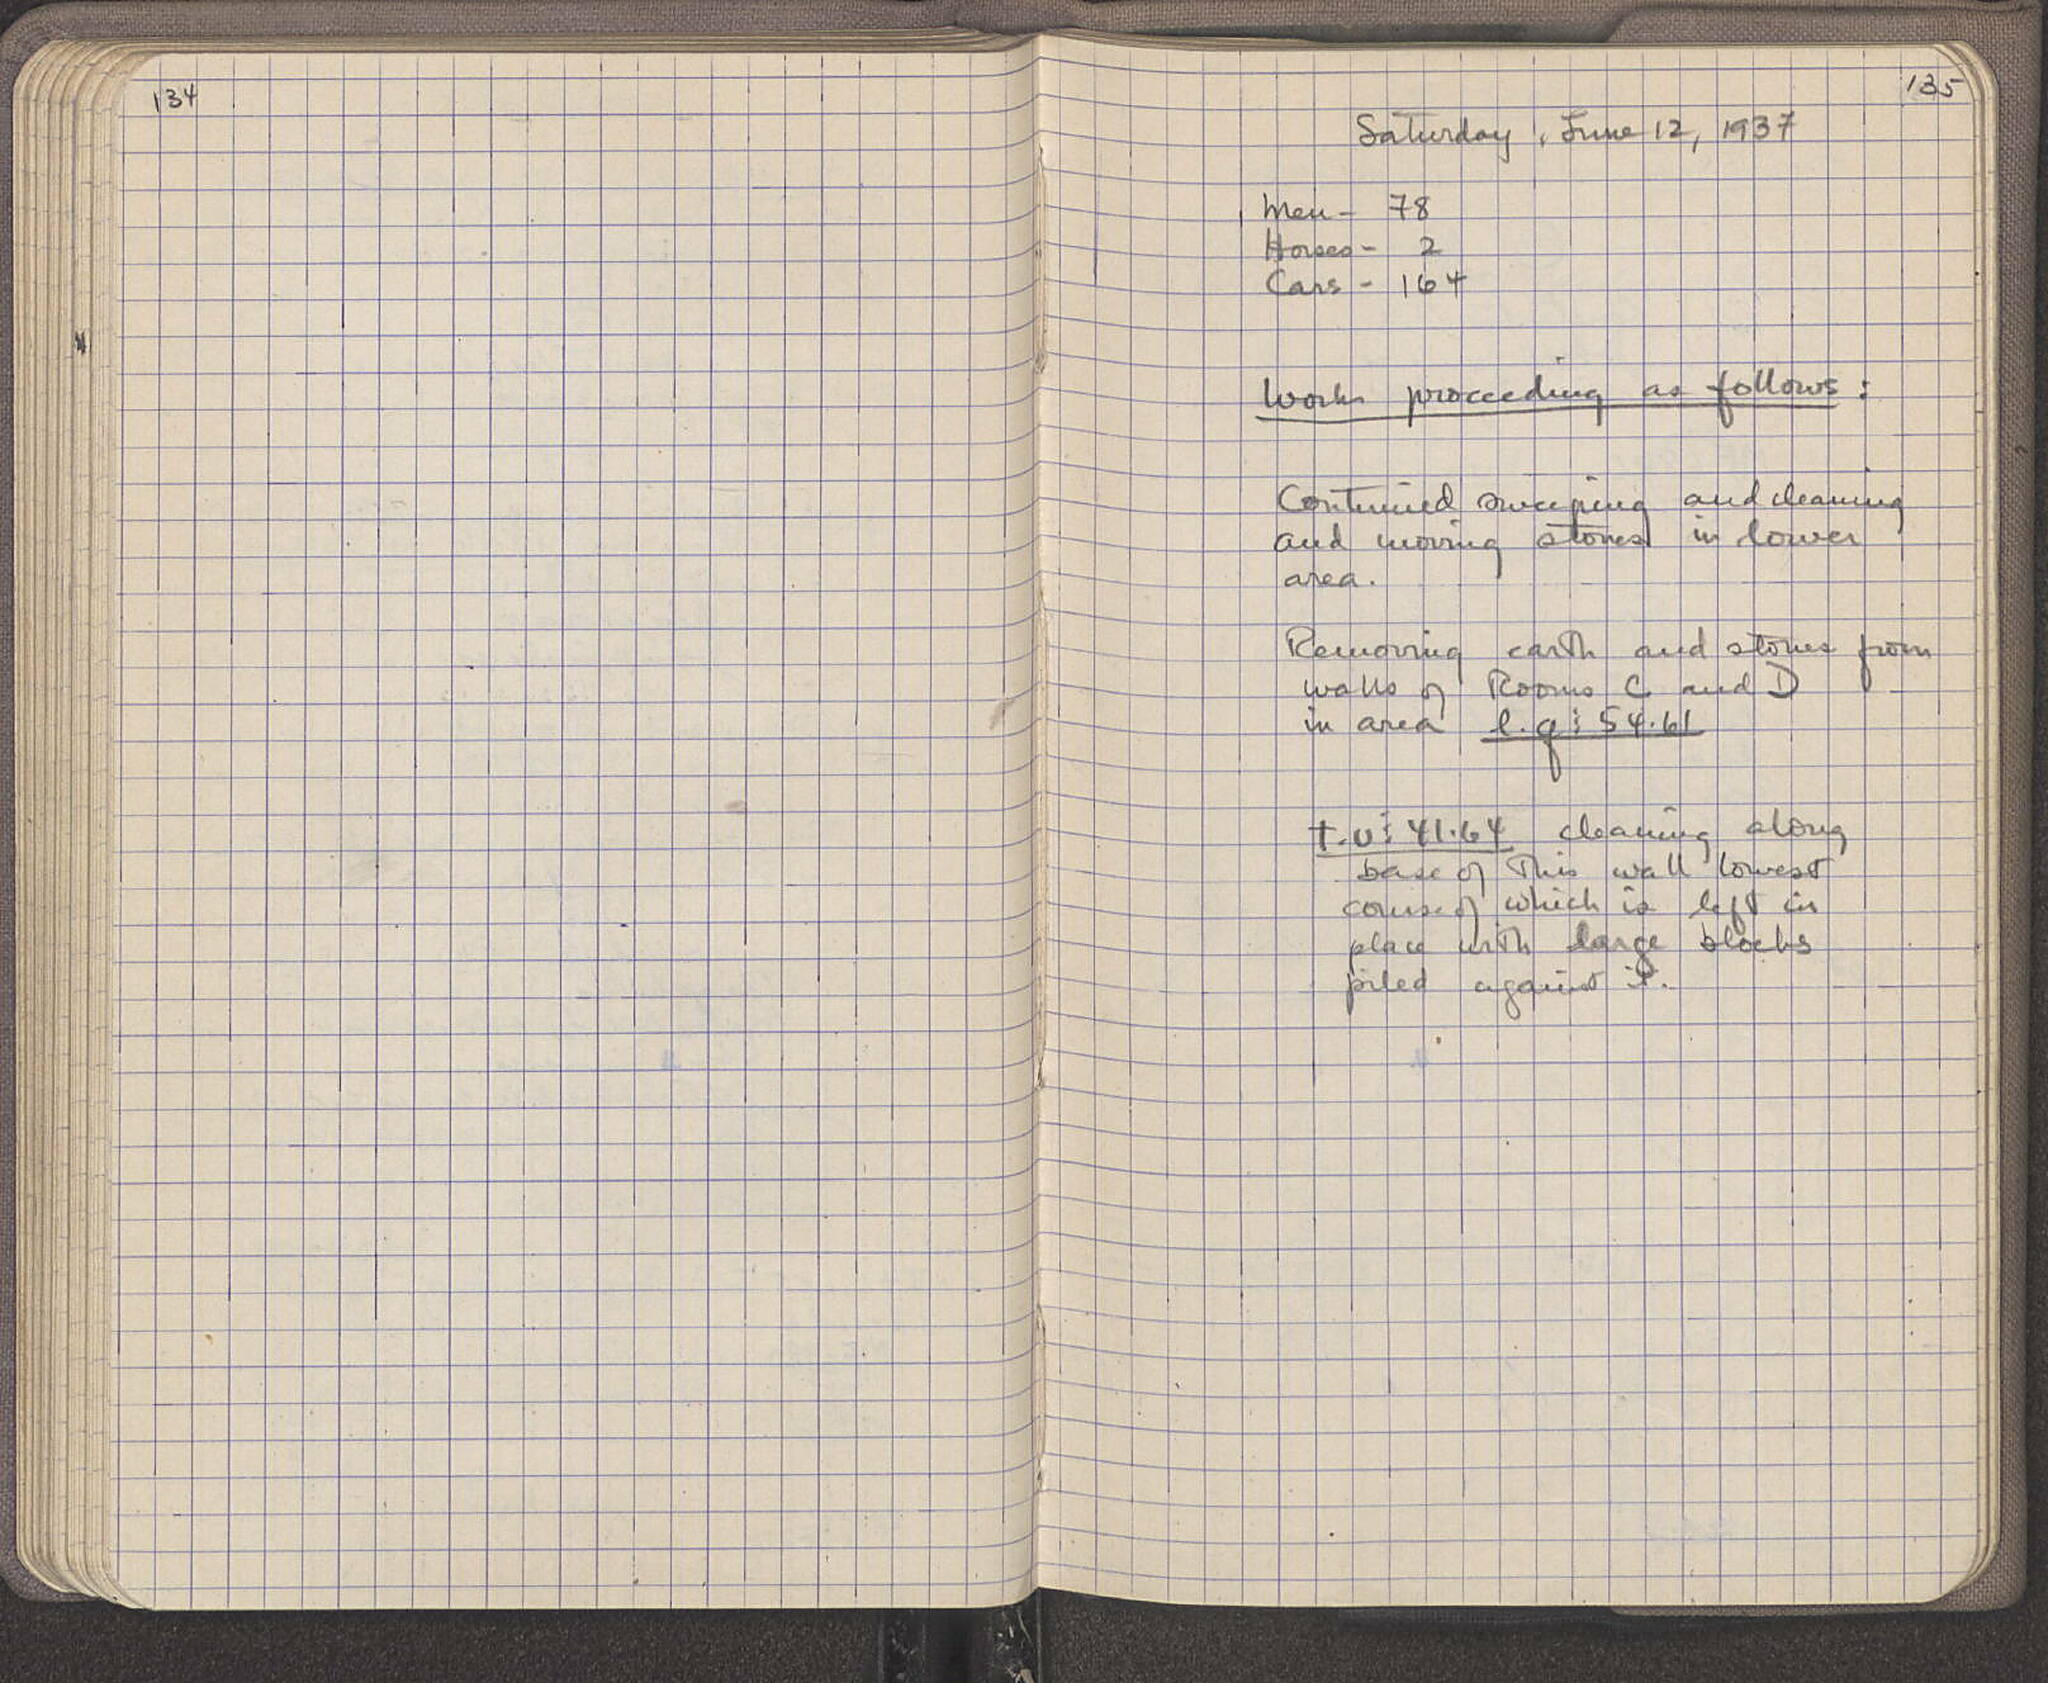 134
135
Saturday, June 12, 1937
Men - 78
Horses - 2
Cars - 164
Work proceeding as follows:
Continued sweeping and cleaning
and moving stones in lower
area.
Removing earth and stones from
walls of Rooms C and D
in area l.q : 54.61
t.u : 41.64 cleaning along
base of this wall lowest
course of which is left in
place with large blocks
piled against it.